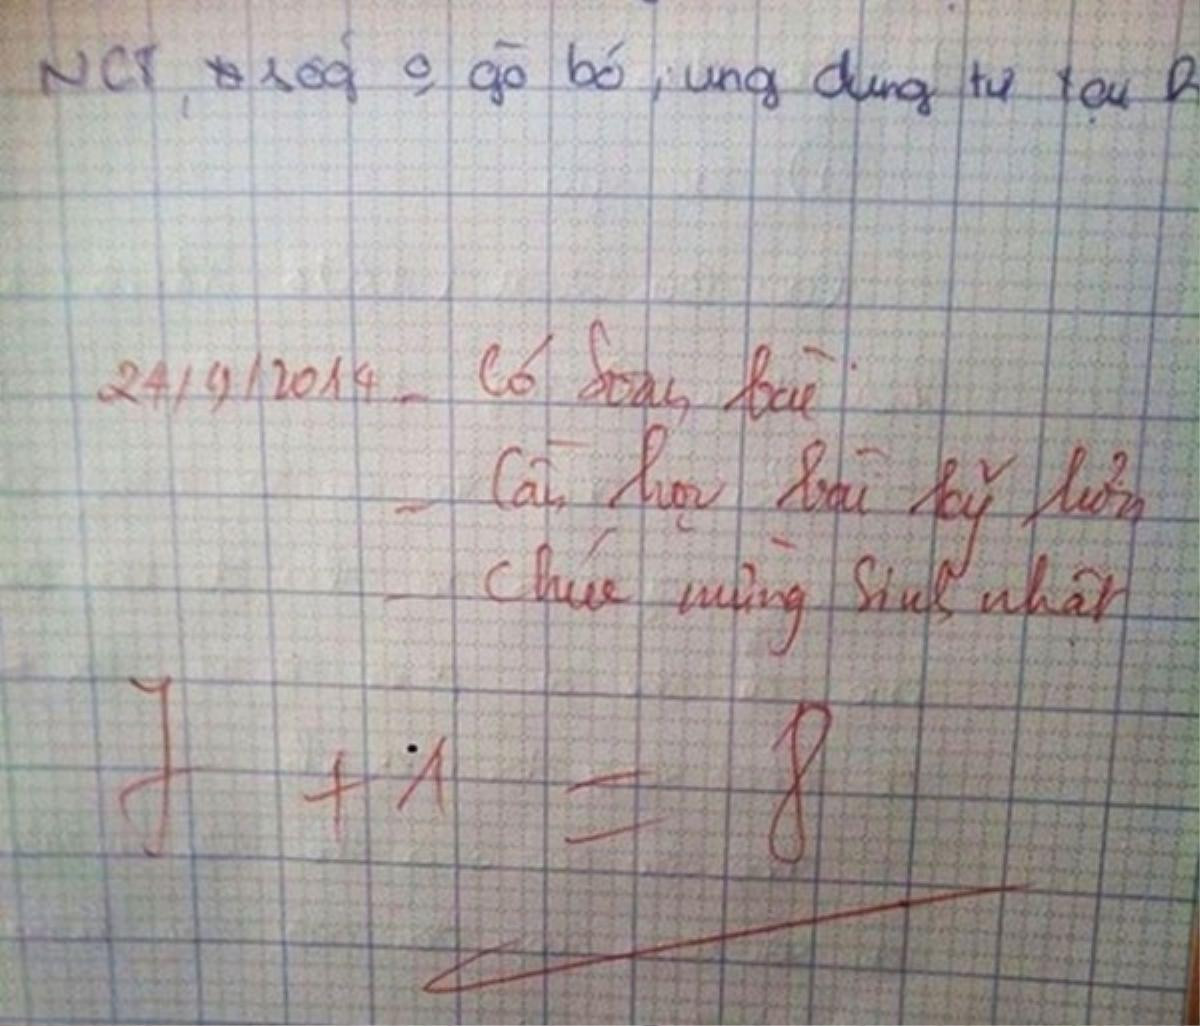 NCT, sốg ò gò bó, ung dung tự tại
24/9/2014 - Có soạn bài
- Cần học bài kỹ hơn
- Chúc mừng Sinh nhật
7 + 1 = 8